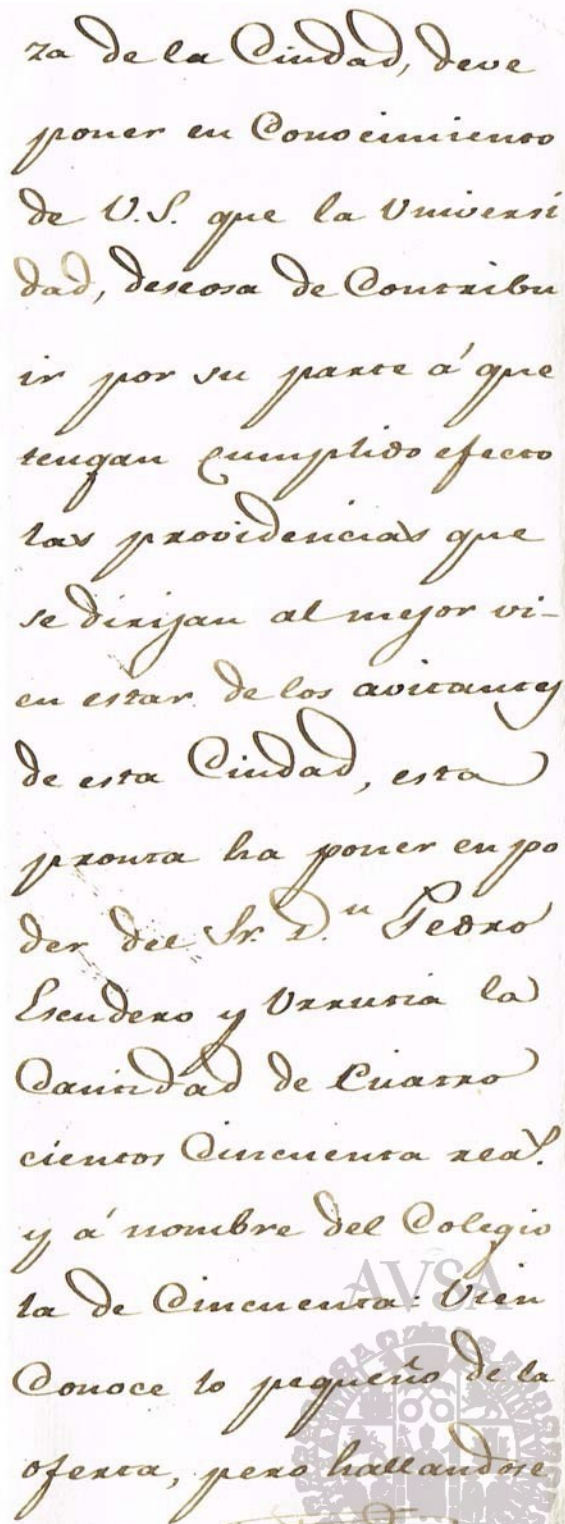 za de la Ciudad, deve
poner en Conocimiento
de V.S. que la Universi
dad, deseosa de Contribu
ir por su parte á que
tengan cumplido efecto
las providencias que
se dirijan al mejor vi-
en estar de los avitantes
de esta Ciudad, esta
pronta ha poner en po
der del Sr. D.n Pedro
Escudero y Urrutia la
Cantidad de Cuatro
cientos Cincuenta reas.
y á nombre del Colegio
la de Cincuenta: Vien
Conoce lo pequeño de la
oferta, pero hallandose
AVSA